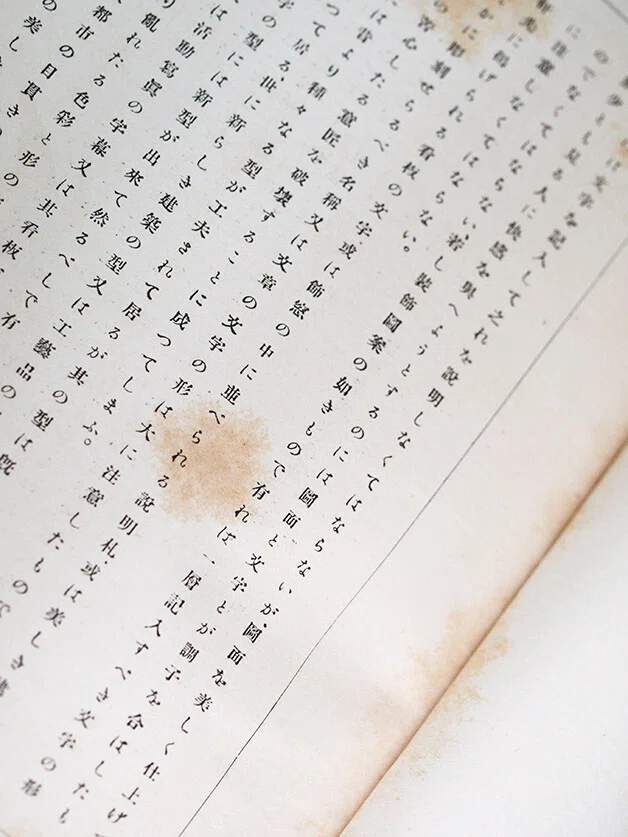 文字を記入して之れを說明しなくてはならないが、圖面を美しく仕上げ
でなく見る人に快感を與へようとするのには圖面と文字とが調子を合はしたも
に注意しなくてはならない、若し裝飾圖案の如きもので有れば一層記入すべき文字の形
に揭げられる看板の文字或は飾窓の中に並べられる說明札、或は美しき
彫刻せらるべき名稱又は文章の文字の形は大に注意したものの
苦心したる意匠を破壞することに成つてしまふ。
は昔より種々なる型が工夫されて居るが其の型は既
つて居る、世に新らしき建築の型又は工藝品の
字の型には新型が出來て然るべしで有
活動寫眞の字幕又は其看板
り亂れたる色彩と形の
都市の目貫きの
の美しき